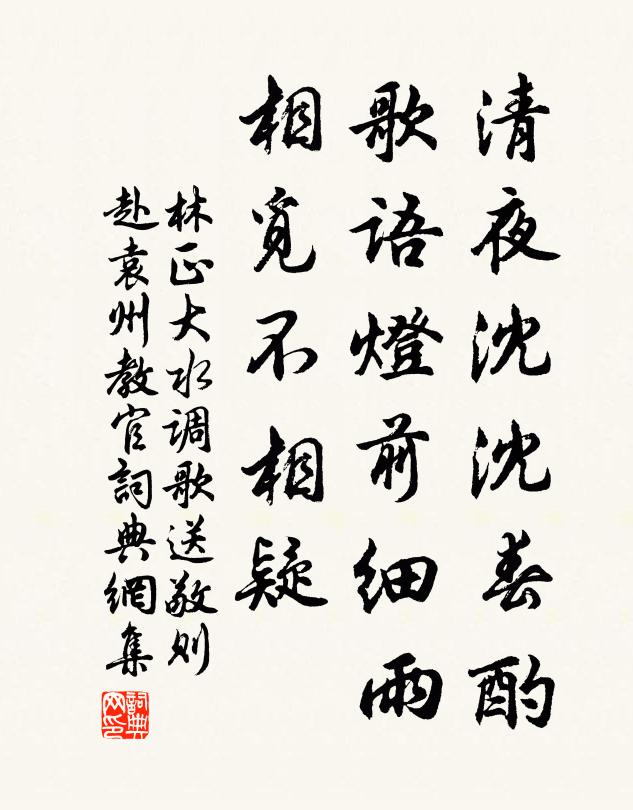 清夜沈沈春酌
歌語燈前細雨
相覓不相疑
林正大水调歌送敬則
赴袁州教官詞典網集
詞典网印